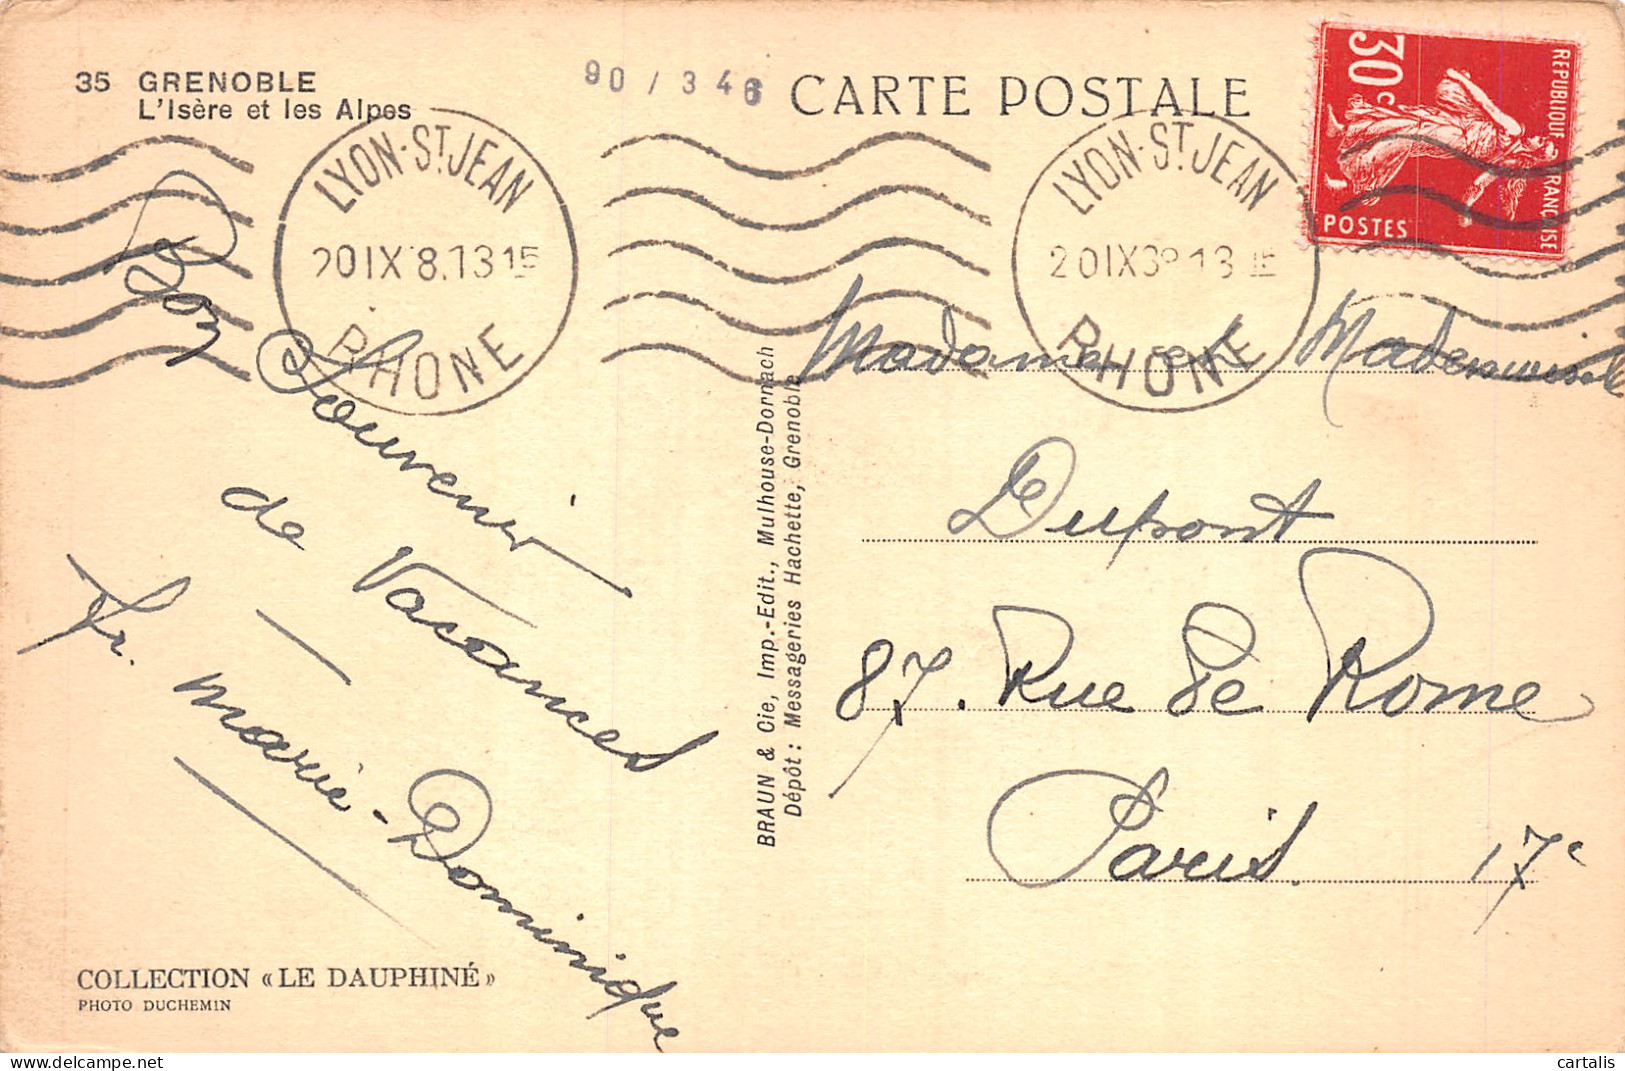 35 GRENOBLE
L'Isère et les Alpes
90 / 346
CARTE POSTALE
30c
REPUBLIQUE FRANCAISE
POSTES
LYON-ST JEAN
20 IX 8.13 15
RHONE
LYON-ST JEAN
20 IX 38 13 15
RHONE
Bon
Souvenir
de
Vacances
fr. Marie-Dominique
Madame et Mademoiselle
Dupont
87. Rue de Rome
Paris 17e
BRAUN & Cie, Imp.-Edit., Mulhouse-Dornach
Dépôt : Messageries Hachette, Grenoble
COLLECTION « LE DAUPHINÉ »
PHOTO DUCHEMIN
cartalis